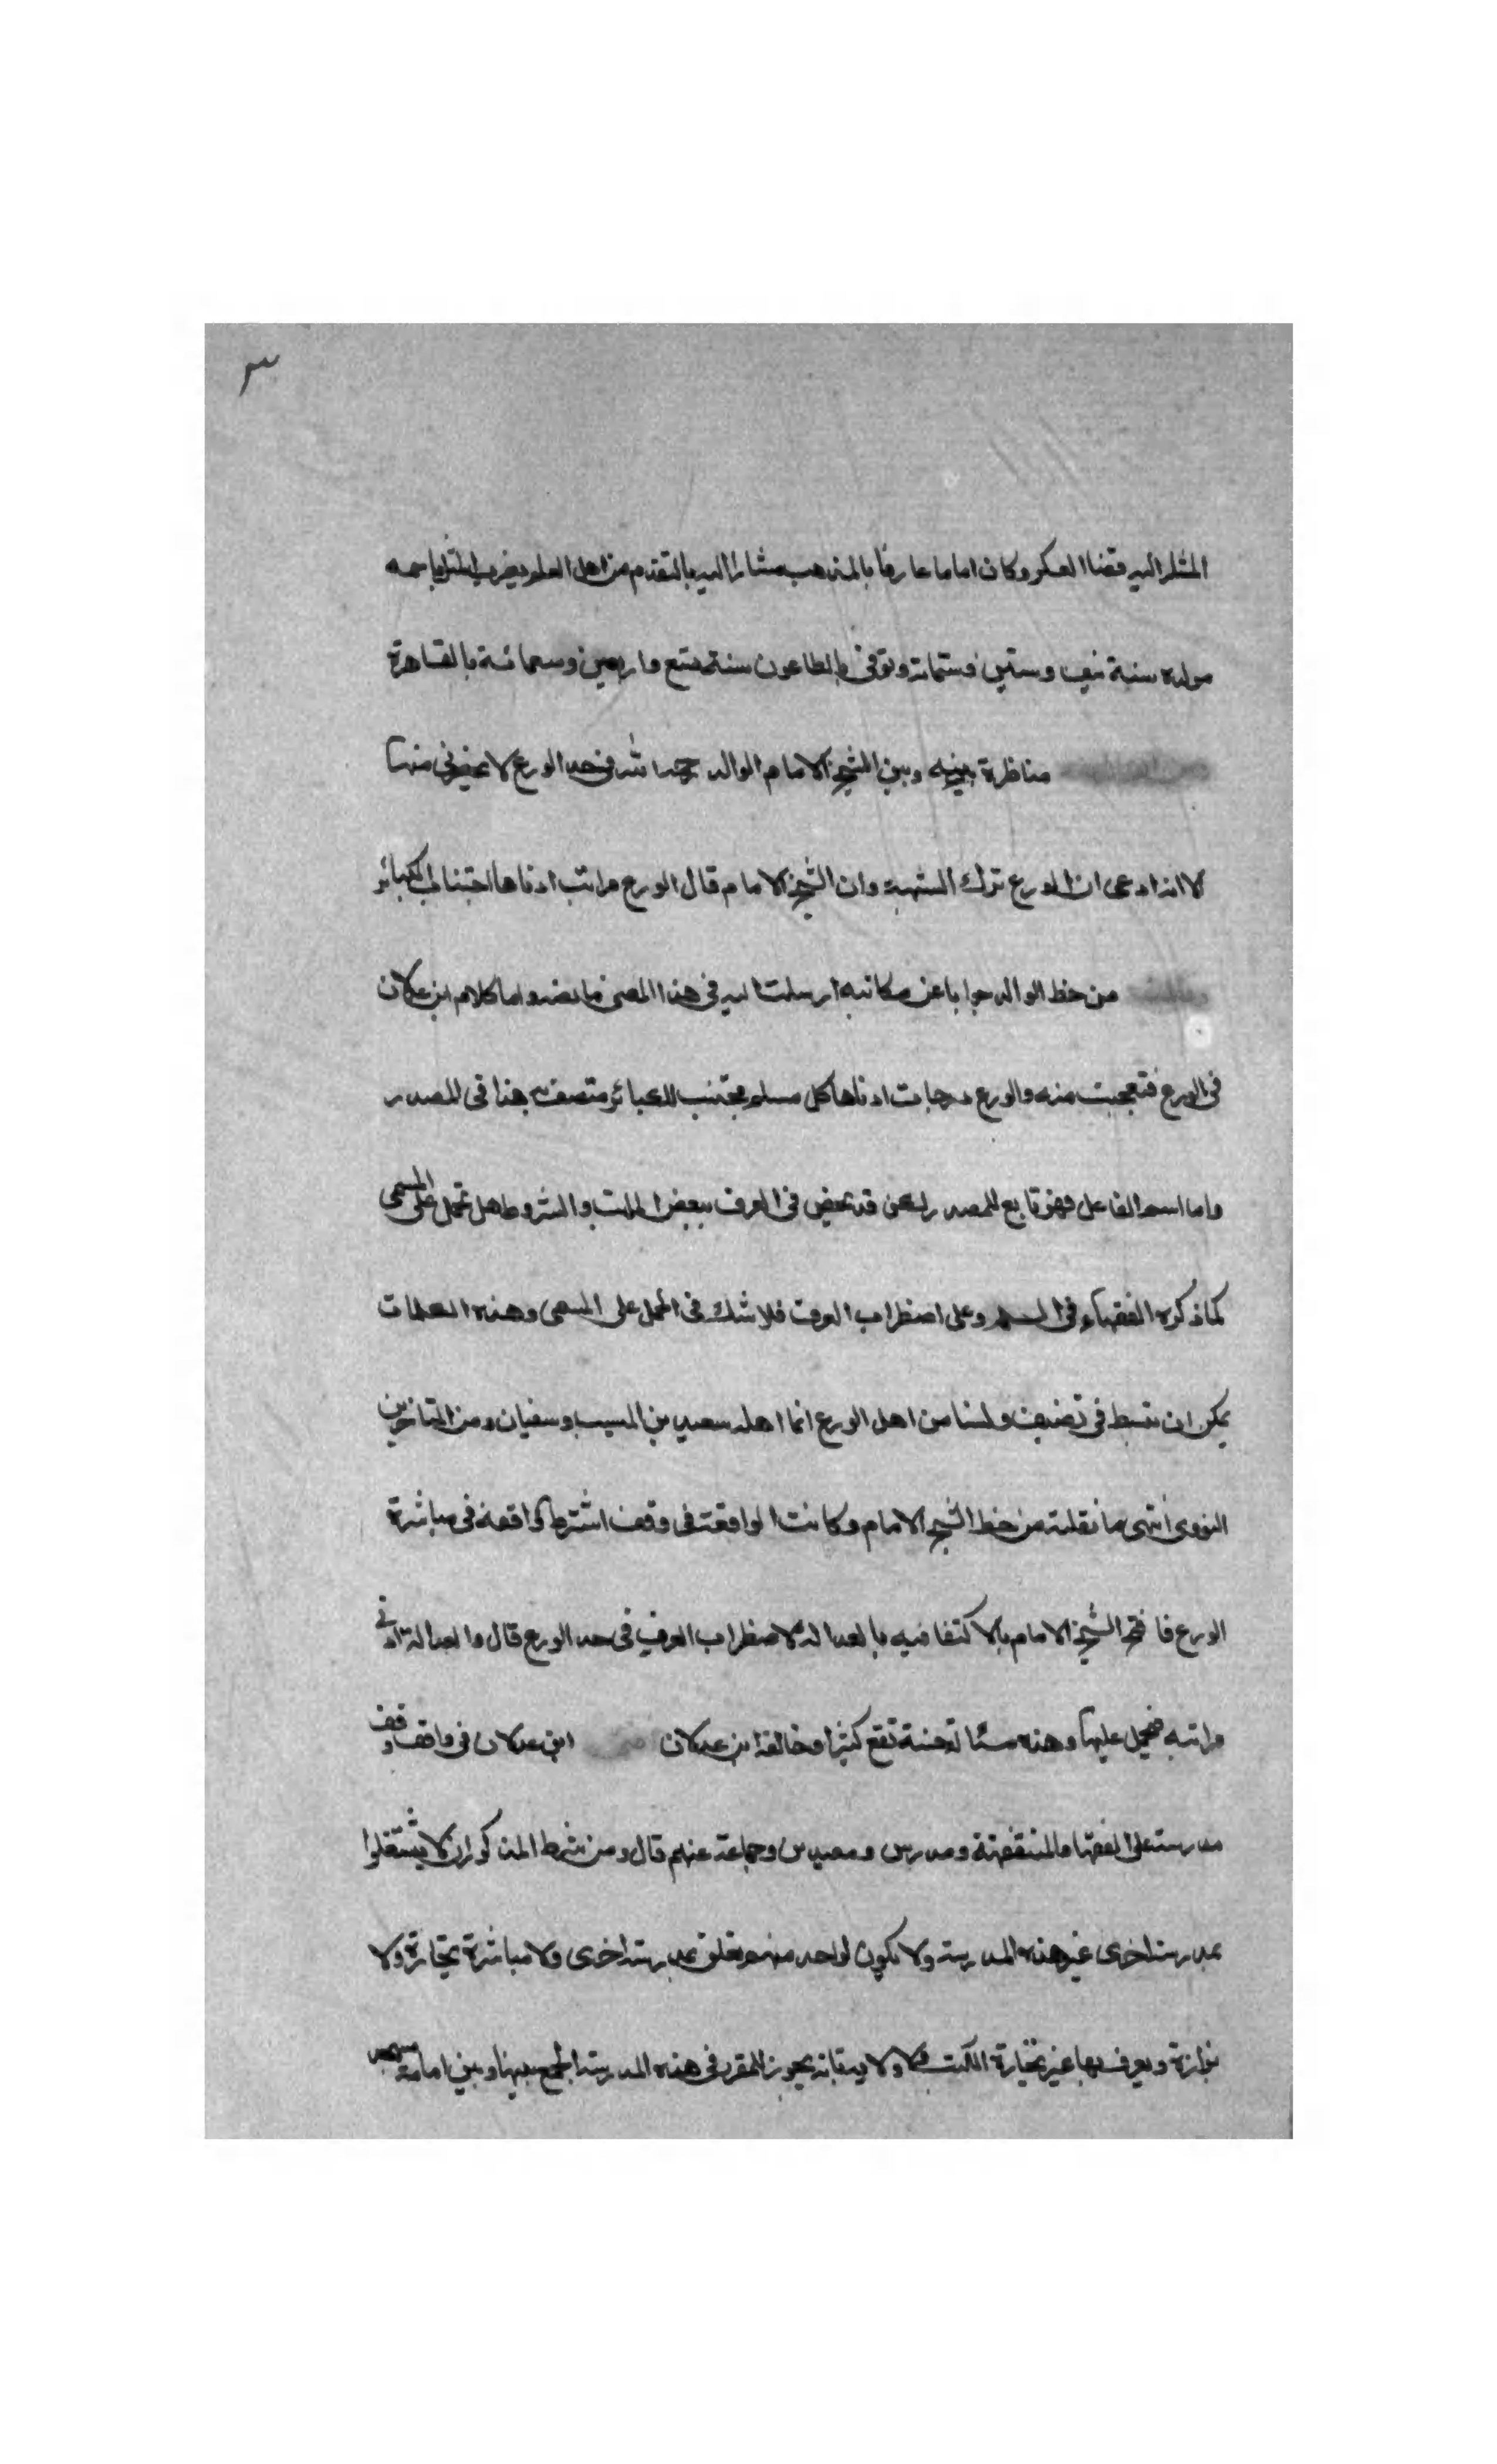 ٣
اليه قضا العسكر وكان اماما عارفا بالمذهب مشارا اليه بالتقدم من اهل العلم يضرب المثل باسمه
مولده سنة نيف وستين وستمائة وتوفي بالطاعون سنة تسع واربعين وسبعمائة بالقاهرة
مناظرة بينه وبين الشيخ الامام الوالد رحمه الله في حد الورع لا يحضرني منها
الا انه ادعى ان الورع ترك الشبهة وان الشيخ الامام قال الورع مراتب ادناها اجتناب الكبائر
من خط الوالد جوابا عن مكاتبه ارسلت اليه في هذا المعنى ما نصه واما كلام ابن عدلان
في الورع فتعجبت منه والورع درجات ادناها كل مسلم مجتنب للكبائر متصف به هذا في المصدر
واما اسم الفاعل فهو تابع للمصدر لكن قد يختص في العرف ببعض المراتب والشروط هل تحمل على المسمى
كما ذكره الفقهاء في السلم وعلى اضطراب العرف فلا شك في الحمل على المسمى وهذه الكلمات
يمكن ان تبسط في تصنيف ولسنا من اهل الورع انما اهله سعيد بن المسيب وسفيان ومن المتاخرين
النووي انتهى ما نقلته من خط الشيخ الامام وكانت الواقعة في وقف اشترط واقفه في مباشرة
الورع فافتى الشيخ الامام بالاكتفا فيه بالعدالة لاضطراب العرف في حد الورع قال والعدالة ادنى
مراتبه فيحمل عليها وهذه مسئالة حسنة تقع كثيرا وخالفه ابن عدلان ابن عدلان في واقف وقف
مدرسة على الفقها والمتفقهة ومدرس ومعيدين وجماعة عينهم قال ومن شرط المذكورين ان لا يشتغلوا
بمدرسة اخرى غير هذه المدرسة ولا يكون لواحد منهم تعلق بمدرسة اخرى ولا مباشرة بتجارة ولا
بزازة ويعرف بها غير تجارة الكتب ولا ولاية فانه يجوز للمقرر في هذه المدرسة الجمع بينها وبين امامة مسجد